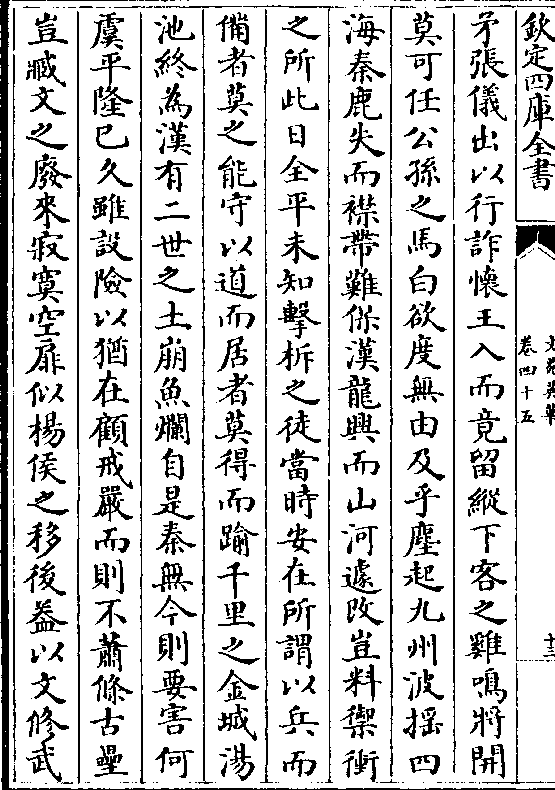 欽定四庫全書
卷四十五
十三
矛張儀出以行詐懷王入而竟留縱下客之雞鳴將開
莫可任公孫之馬白欲度無由及乎塵起九州波揺四
海秦鹿失而襟帶難保漢龍興而山河遽改豈料禦衝
之所此日全平未知擊柝之徒當時安在所謂以兵而
備者莫之能守以道而居者莫得而踰千里之金城湯
池終為漢有二世之土崩魚爛自是秦無今則要害何
虞平隆已久雖設險以猶在顧戒嚴而則不蕭條古壘
豈臧文之廢來寂寞空扉似楊侯之移後葢以文修武